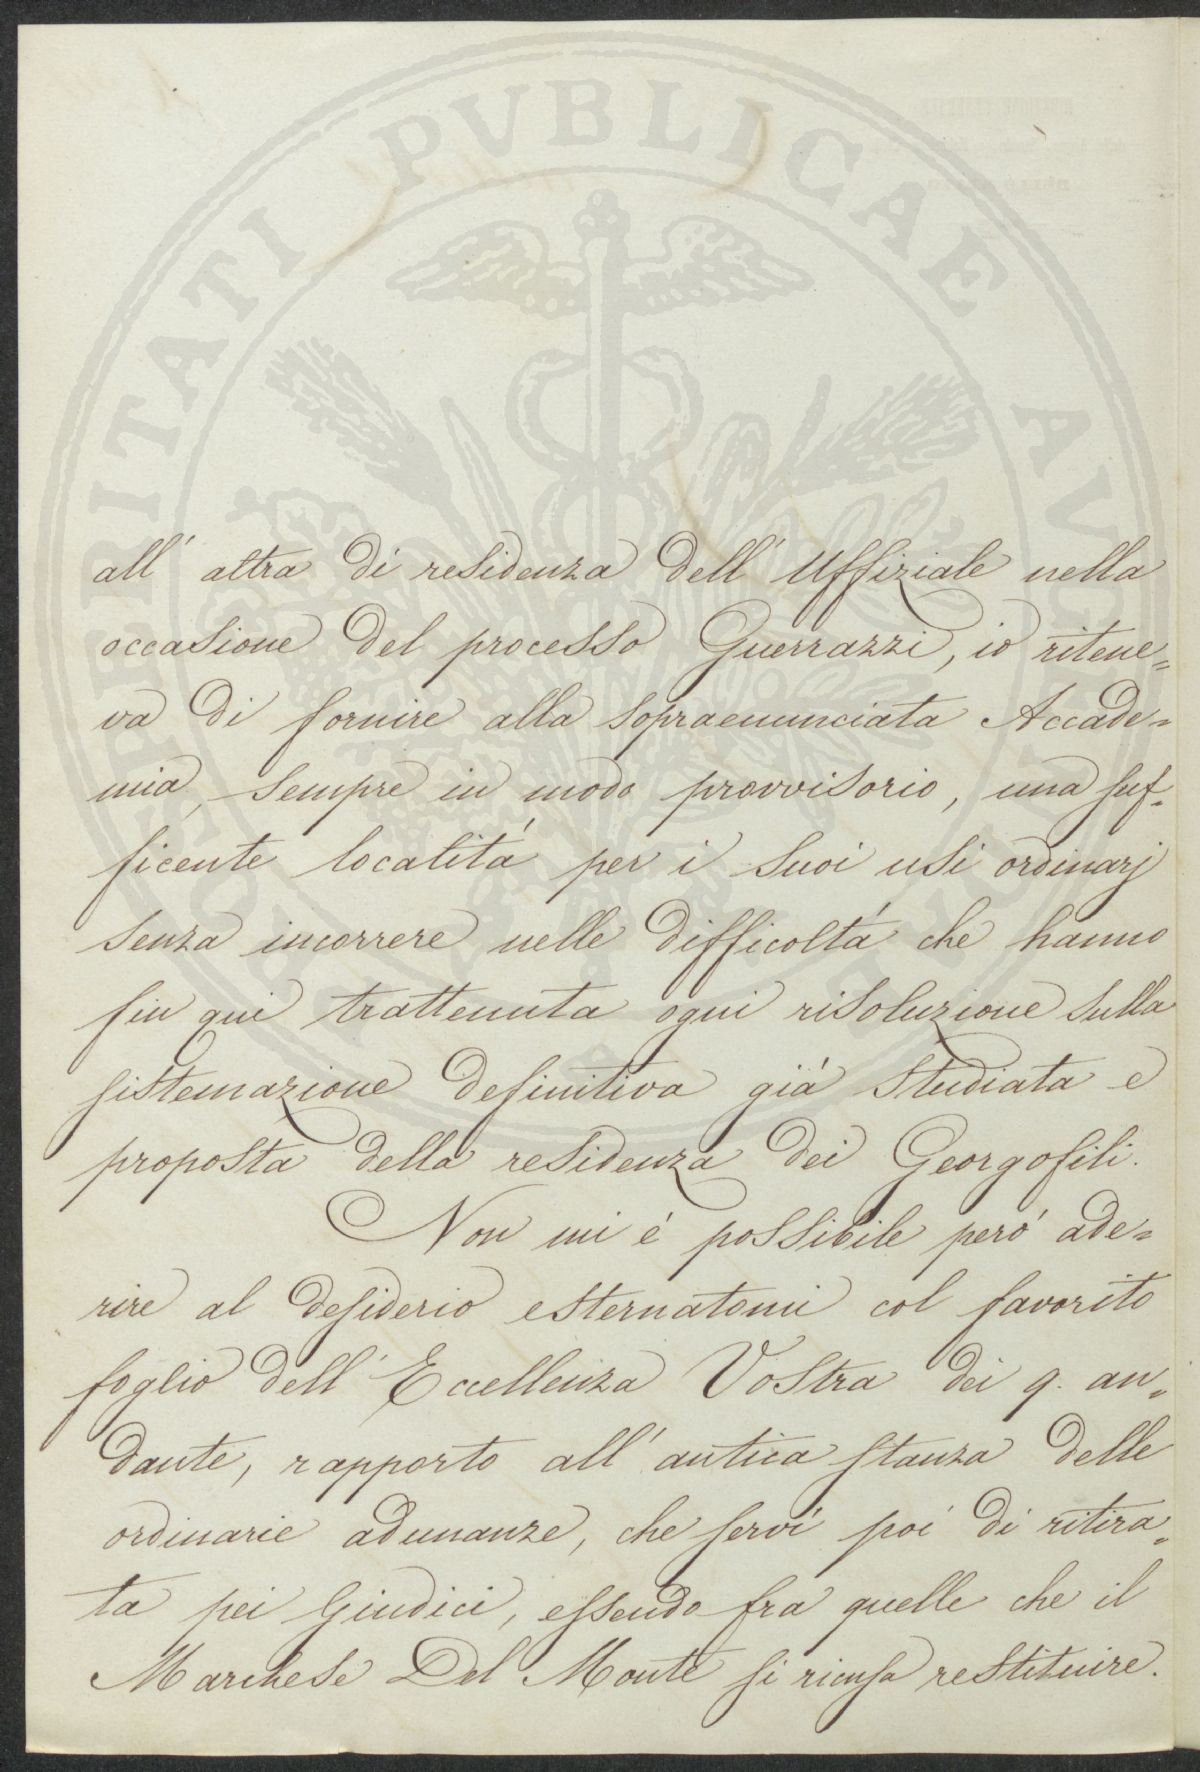 PROSPERITATI PVBLICAE AVGENDAE
all' altra di residenza dell' Uffiziale nella
occasione del processo Guerrazzi, io ritene=
va di fornire alla sopraenunciata Accade=
mia, sempre in modo provvisorio, una suf=
ficente localitá per i suoi usi ordinarj
senza incorrere nelle difficoltá che hanno
fin qui trattenuta ogni risoluzione sulla
sistemazione definitiva giá studiata e
proposta della residenza dei Georgofili.
Non mi é possibile peró ade=
rire al desiderio esternatomi col favorito
foglio dell' Eccellenza Vostra dei 9. an=
dante, rapporto all' antica stanza delle
ordinarie adunanze, che serví poi di ritira=
ta pei Giudici, essendo fra quelle che il
Marchese Del Monte si ricusa restituire.